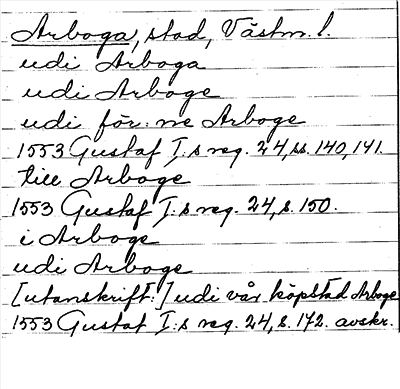 Arboga, stad, Västm. l.
udi Arboga
udi Arboge
udi för:ne Arboge
1553 Gustaf I:s reg. 24, ss. 140, 141.
till Arboge
1553 Gustaf I:s reg. 24, s. 150.
i Arboge
udi Arboge
[utanskrift:] udi vår köpstad Arboge
1553 Gustaf I:s reg. 24, s. 172. avskr.